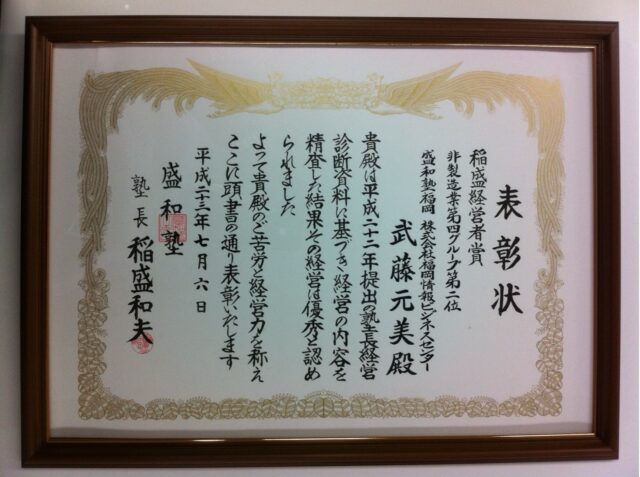 表彰状
稲盛経営者賞
非製造業第四グループ第二位
盛和塾福岡 株式会社福岡情報ビジネスセンター
武藤元美殿
貴殿は平成二十二年提出の塾長経営
診断資料に基づき経営の内容を
精査した結果その経営は優秀と認め
られました
よって貴殿のご苦労と経営力を称え
ここに頭書の通り表彰いたします
平成二十三年七月六日
盛和塾
塾長 稲盛和夫